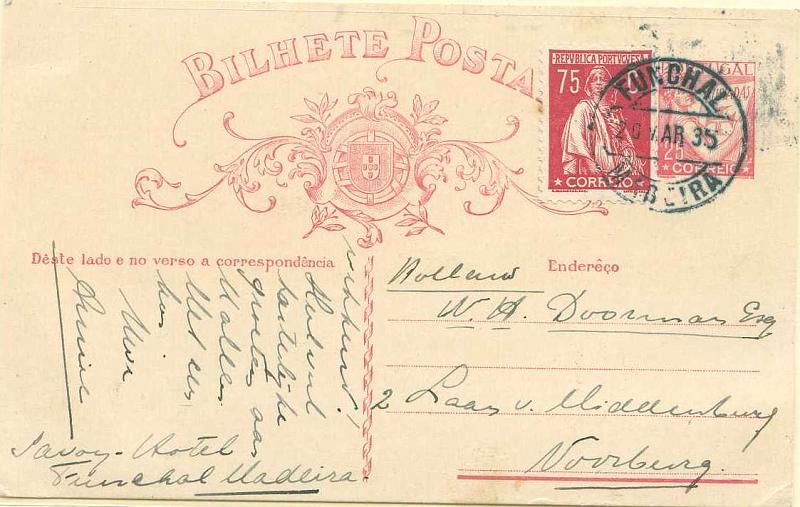 BILHETE POSTA
REPVBLICA PORTVGVESA
75
CORREIO
FUNCHAL
20 MAR 35
MADEIRA
25
CORREIO
Dêste lado e no verso a correspondência
Endereço
Holland
W. H. Doorman Esq
2 Laan v. Middenburg
Voorburg.
hartelijke
groeten aan
allen
Met een
Savoy-Hotel
Funchal Madeira